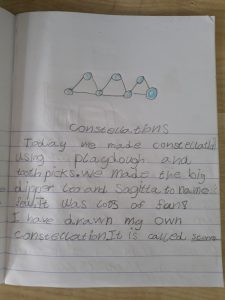 constellations
Today we made constellati
using playdough and
tooth picks. we made the big
dipper Leo and Sagitta to name
It was lots of fun
I have drawn my own
constellation It is called